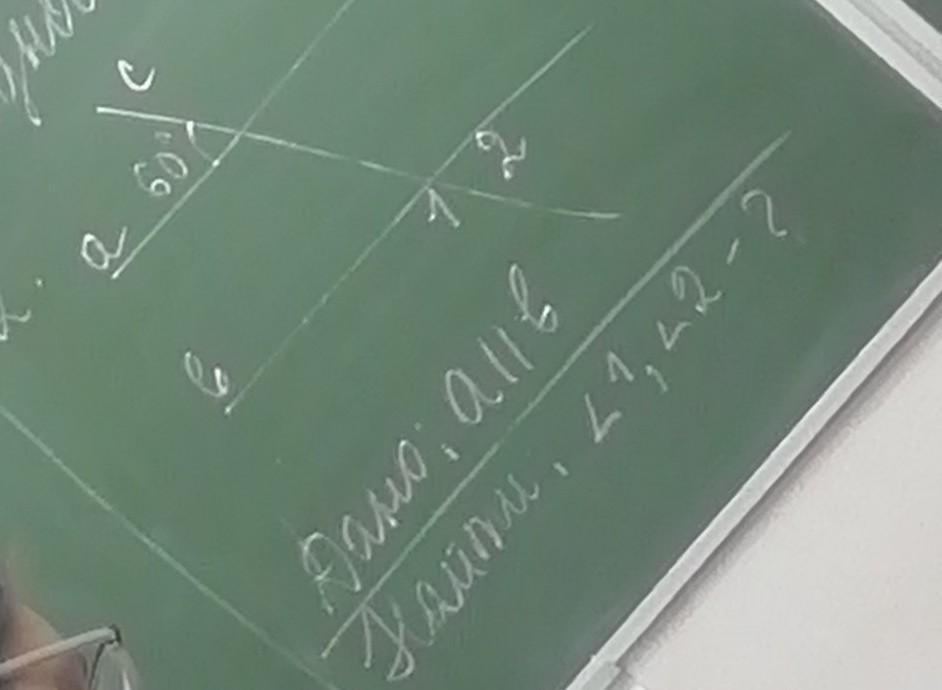 c
60°
a
2
1
b
Дано: a || b
Найти: ∠1, ∠2 - ?